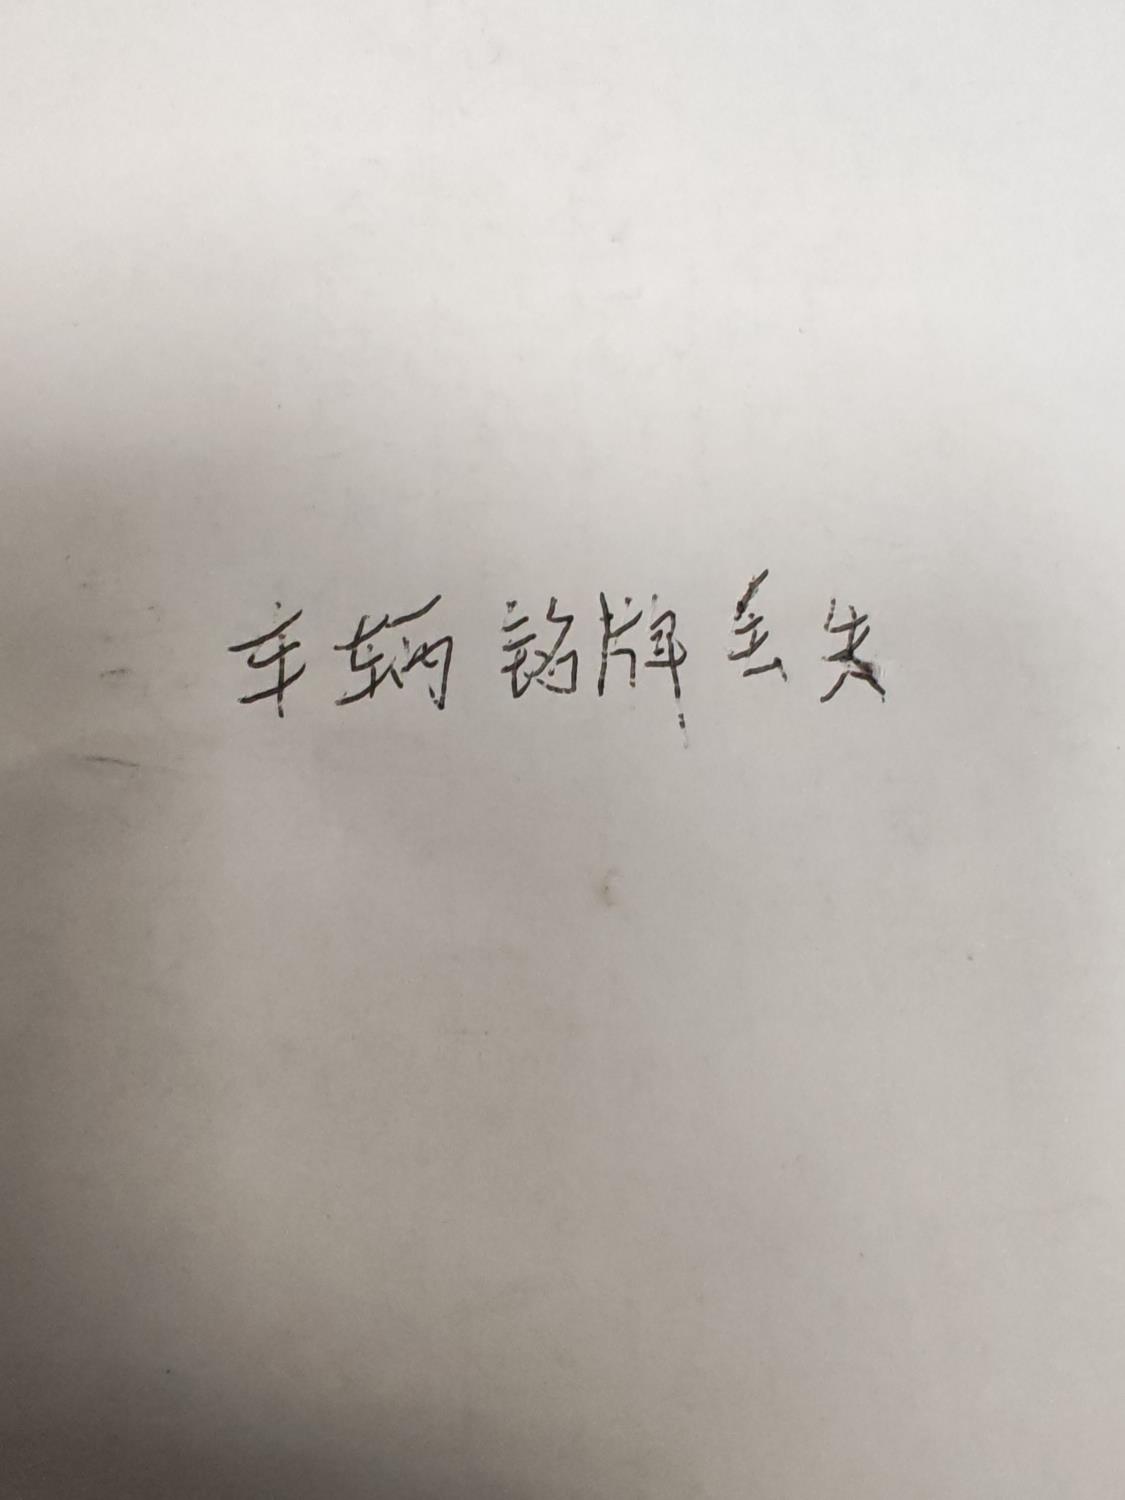 车辆铭牌丢失